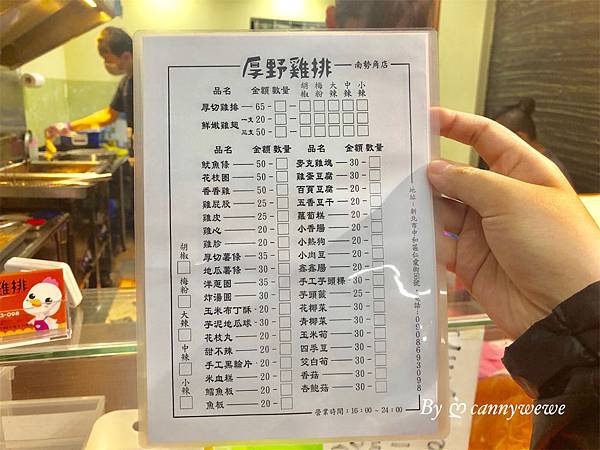 厚野雞排
南勢角店
品名 金額 數量 胡椒 梅粉 大辣 中辣 小辣
厚切雞排 65
鮮嫩雞翅 一支20
三支50
品名 金額 數量
魷魚條 50
花枝圓 50
香香雞 50
雞屁股 25
雞皮 25
雞心 20
雞胗 20
厚切薯條 35
地瓜薯條 30
洋蔥圈 35
炸湯圓 30
玉米布丁酥 20
芋泥地瓜球 30
花枝丸 20
甜不辣 20
手工黑輪片 20
米血糕 20
鱈魚板 20
魚板 20
品名 金額 數量
麥克雞塊 30
雞蛋豆腐 30
百頁豆腐 20
五香豆干 20
蘿蔔糕 20
小香腸 20
小熱狗 20
小肉豆 20
鑫鑫腸 20
手工芋頭粿 30
芋頭籤 25
花椰菜 30
青椰菜 30
玉米筍 30
四季豆 30
茭白筍 30
香菇 30
杏鮑菇 30
胡椒
梅粉
大辣
中辣
小辣
營業時間:16:00~24:00
0908693098
雞排
3-098
By cannywewe